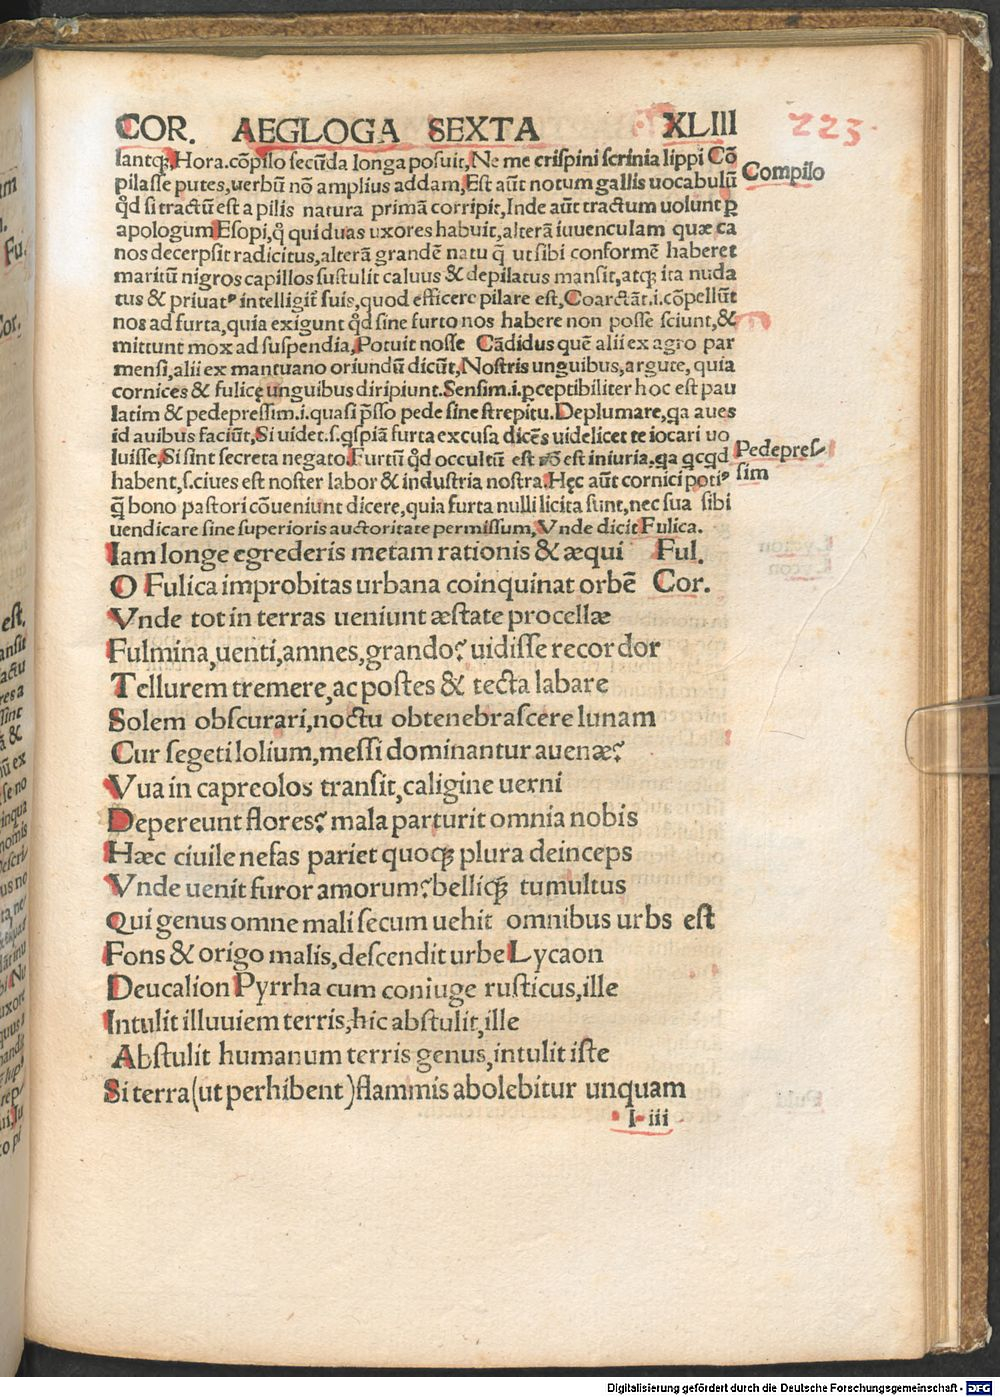 COR. AEGLOGA SEXTA XLIII
223.
lantq́;, Hora. cōpilo secūda longa posuit, Ne me crispini scrinia lippi Cō
Compilo
pilasse putes, uerbū nō amplius addam, Est aūt notum gallis uocabulū
qd̛ si tractū est a pilis natura primā corripit, Inde aūt tractum uolunt ꝑ
apologum Esopi, q̄ qui duas uxores habuit, alterā iuuenculam quæ ca
nos decerpsit radicitus, alterā grandē natu q̄ ut sibi conformē haberet
maritū nigros capillos sustulit caluus & depilatus mansit, atq́; ita nuda
tus & priuatꝰ intelligit̄ suis, quod efficere pilare est, Coarctāt .i. cōpellūt
nos ad furta, quia exigunt qd̛ sine furto nos habere non posse sciunt, &
mittunt mox ad suspendia, Potuit nosse Cādidus quē alii ex agro par
mensi, alii ex mantuano oriundū dicūt, Nostris unguibus, argute, quia
cornices & fulicę unguibus diripiunt. Sensim .i. ꝑceptibiliter hoc est pau
latim & pedepressim .i. quasi p̄sso pede sine strepitu. Deplumare, ꝗa aues
id auibus faciūt, Si uidet .s. ꝗspiā furta excusa dicēs uidelicet te iocari uo
luisse, Si sint secreta negato. Furtū qd̛ occultū est nō est iniuria. ꝗa ꝗcꝗd
Pedepres-
sim
habent, s. ciues est noster labor & industria nostra. Hęc aūt cornici potiꝰ
q̄ bono pastori cōueniunt dicere, quia furta nulli licita sunt, nec sua sibi
uendicare sine superioris auctoritate permissum, Vnde dicit Fulica.
Iam longe egrederis metam rationis & æqui Ful.
O Fulica improbitas urbana coinquinat orbē Cor.
Vnde tot in terras ueniunt æstate procellæ
Fulmina, uenti, amnes, grando? uidisse recordor
Tellurem tremere, ac postes & tecta labare
Solem obscurari, noctu obtenebrascere lunam
Cur segeti lolium, messi dominantur auenæ?
Vua in capreolos transit, caligine uerni
Depereunt flores? mala parturit omnia nobis
Hæc ciuile nefas pariet quoq́; plura deinceps
Vnde uenit furor amorum? belliq́; tumultus
Qui genus omne mali secum uehit omnibus urbs est
Fons & origo malis, descendit urbe Lycaon
Deucalion Pyrrha cum coniuge rusticus, ille
Intulit illuuiem terris, hic abstulit, ille
Abstulit humanum terris genus, intulit iste
Si terra (ut perhibent) flammis abolebitur unquam
I iii
Digitalisierung gefördert durch die Deutsche Forschungsgemeinschaft - DFG